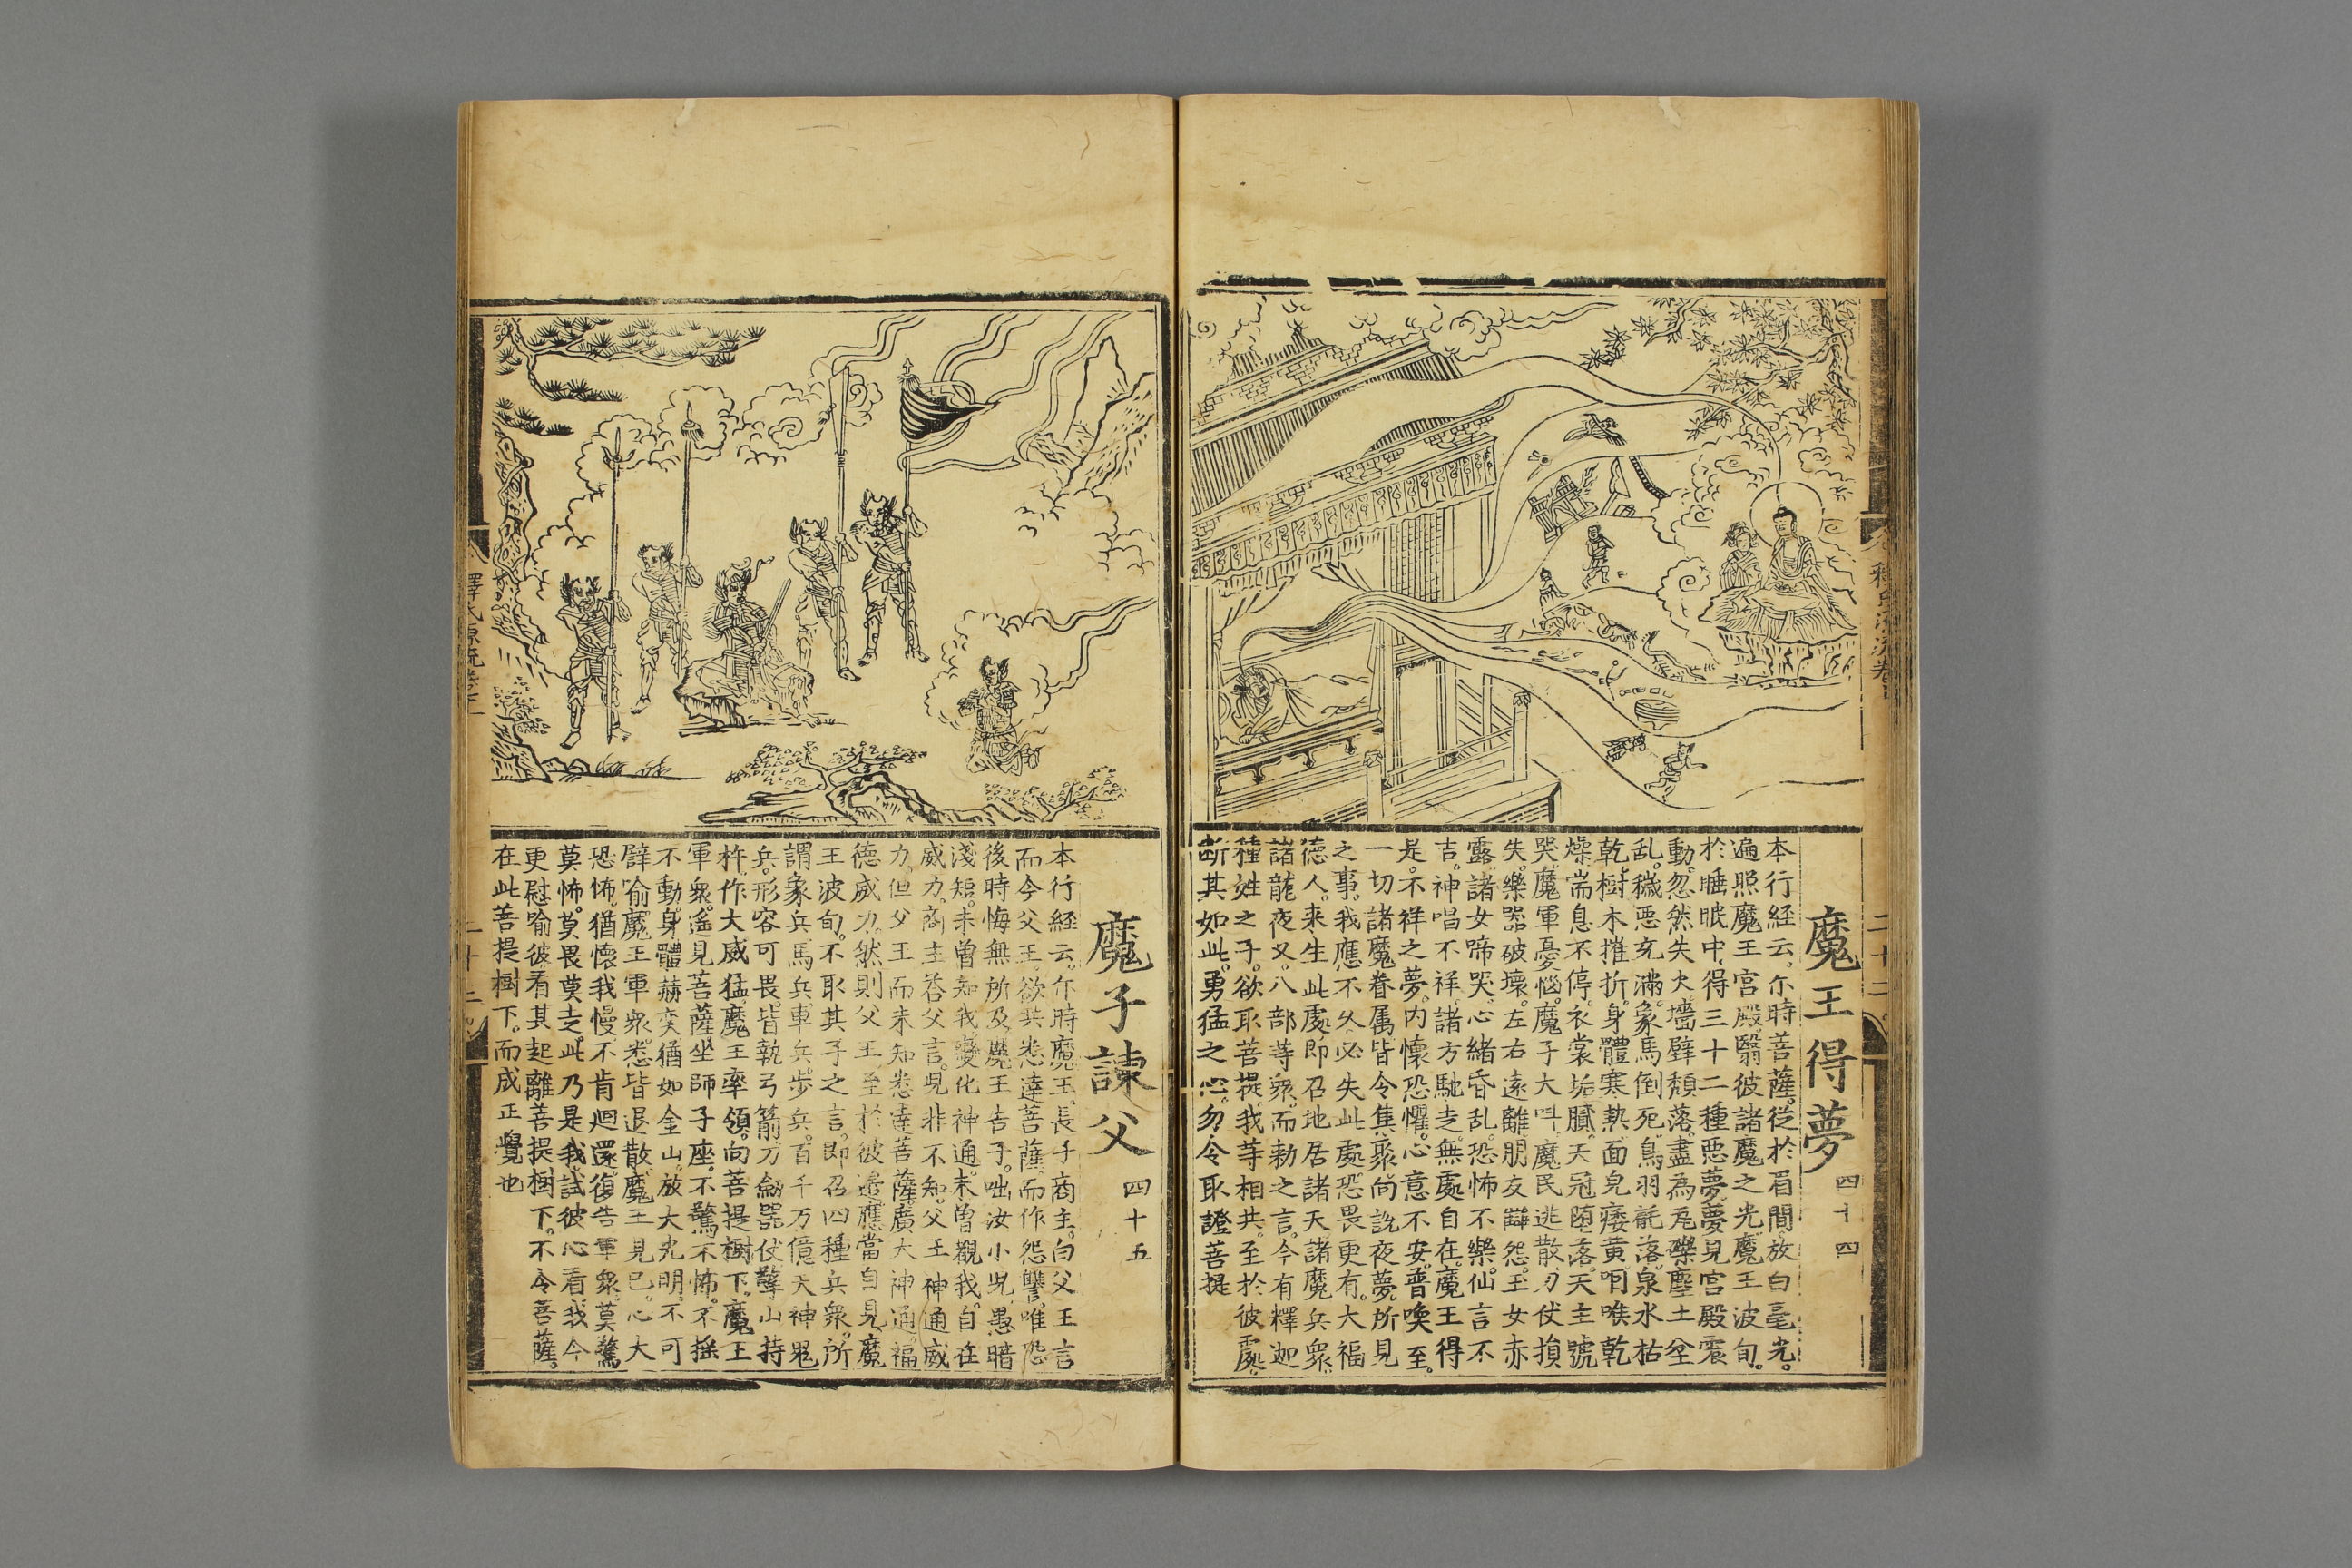 魔王得夢 四十四
本行経云尒時菩薩從於眉間放白毫光。
遍照魔王宮殿翳彼諸魔之光魔王波旬。
於睡眠中得三十二種惡夢夢見宮殿震
動忽然失火墻壁頹落盡為瓦礫塵土坌
乱穢惡充滿象馬倒死鳥羽毻落泉水枯
乾樹木摧折身體寒熱面皃痿黃咽喉乾
燥喘息不停衣裳垢膩天冠墮落天主號
哭魔軍憂惱魔子大呌魔民逃散刃仗損
失樂器破壞左右遠離朋友辭怨王女赤
露諸女啼哭心緒昏乱恐怖不樂仙言不
吉神唱不祥諸方馳走無處自在魔王得
是不祥之夢内懷恐懼心意不安普喚至
一切諸魔眷属皆令集聚向說夜夢所見
之事我應不久必失此處恐畏更有大福
德人来生此處即召地居諸天諸魔兵衆
諸龍夜叉八部等衆而勅之言今有釋迦
種姓之子欲取菩提我等相共至於彼處。
断其如此勇猛之心勿令取證菩提
魔子諫父 四十五
本行経云尒時魔王長子商主白父王言
而今父王欲共悉達菩薩而作怨讐唯恐
後時悔無所及魔王告子咄汝小児愚暗
淺短未曽知我變化神通未曽觀我自在
威力商主荅父言児非不知父王神通威
力但父王而未知悉達菩薩廣大神通福
德威力然則父王至於彼邊應當自見魔
王波旬不取其子之言即召四種兵衆所
謂象兵馬兵車兵歩兵百千万億天神鬼
兵形容可畏皆執弓箭刀劒器仗擎山持
杵作大威猛魔王率領向菩提樹下魔王
軍衆遥見菩薩坐師子座不驚不怖不揺
不動身體赫奕猶如金山放大光明不可
譬喻魔王軍衆悉皆退散魔王見已心大
恐怖猶懷我慢不肯迴還復告軍衆莫驚
莫怖莫畏莫走此乃是我試彼心看我今
更慰喻彼看其起離菩提樹下不令菩薩。
在此菩提樹下而成正覺也
釋氏源流卷上
二十二